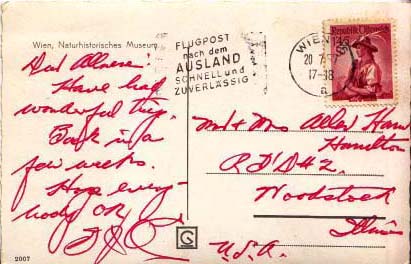 Wien, Naturhistorisches Museum
FLUGPOST
nach dem
AUSLAND
SCHNELL und
ZUVERLÄSSIG
WIEN
20
17-18
Republik Österreich
Dear
Have had
wonderful trip.
Back in a
few weeks.
Hope every-
body OK
Mr & Mrs Allen
Hamilton
RFD #2
Woodstock
Illinois
U.S.A.
2007